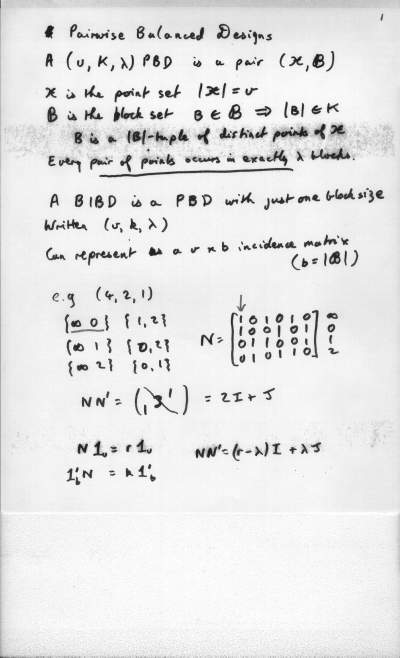 1
Pairwise Balanced Designs
A (v, K, λ) PBD is a pair (𝒳, ℬ)
𝒳 is the point set |𝒳| = v
ℬ is the block set B ∈ ℬ ⇒ |B| ∈ K
B is a |B|-tuple of distinct points of 𝒳
Every pair of points occurs in exactly λ blocks.
A BIBD is a PBD with just one blocksize
Written (v, k, λ)
Can represent as a v × b incidence matrix
(b = |ℬ|)
e.g (4, 2, 1)
{∞ 0} {1, 2}
{∞ 1} {0, 2}
{∞ 2} {0, 1}
N = [1 0 1 0 1 0] ∞
[1 0 0 1 0 1] 0
[0 1 1 0 0 1] 1
[0 1 0 1 1 0] 2
NN' = ( 3 1 ) = 2I + J
N1ᵥ = r1ᵥ NN' = (r-λ)I + λJ
1'ᵦN = k1'ᵦ